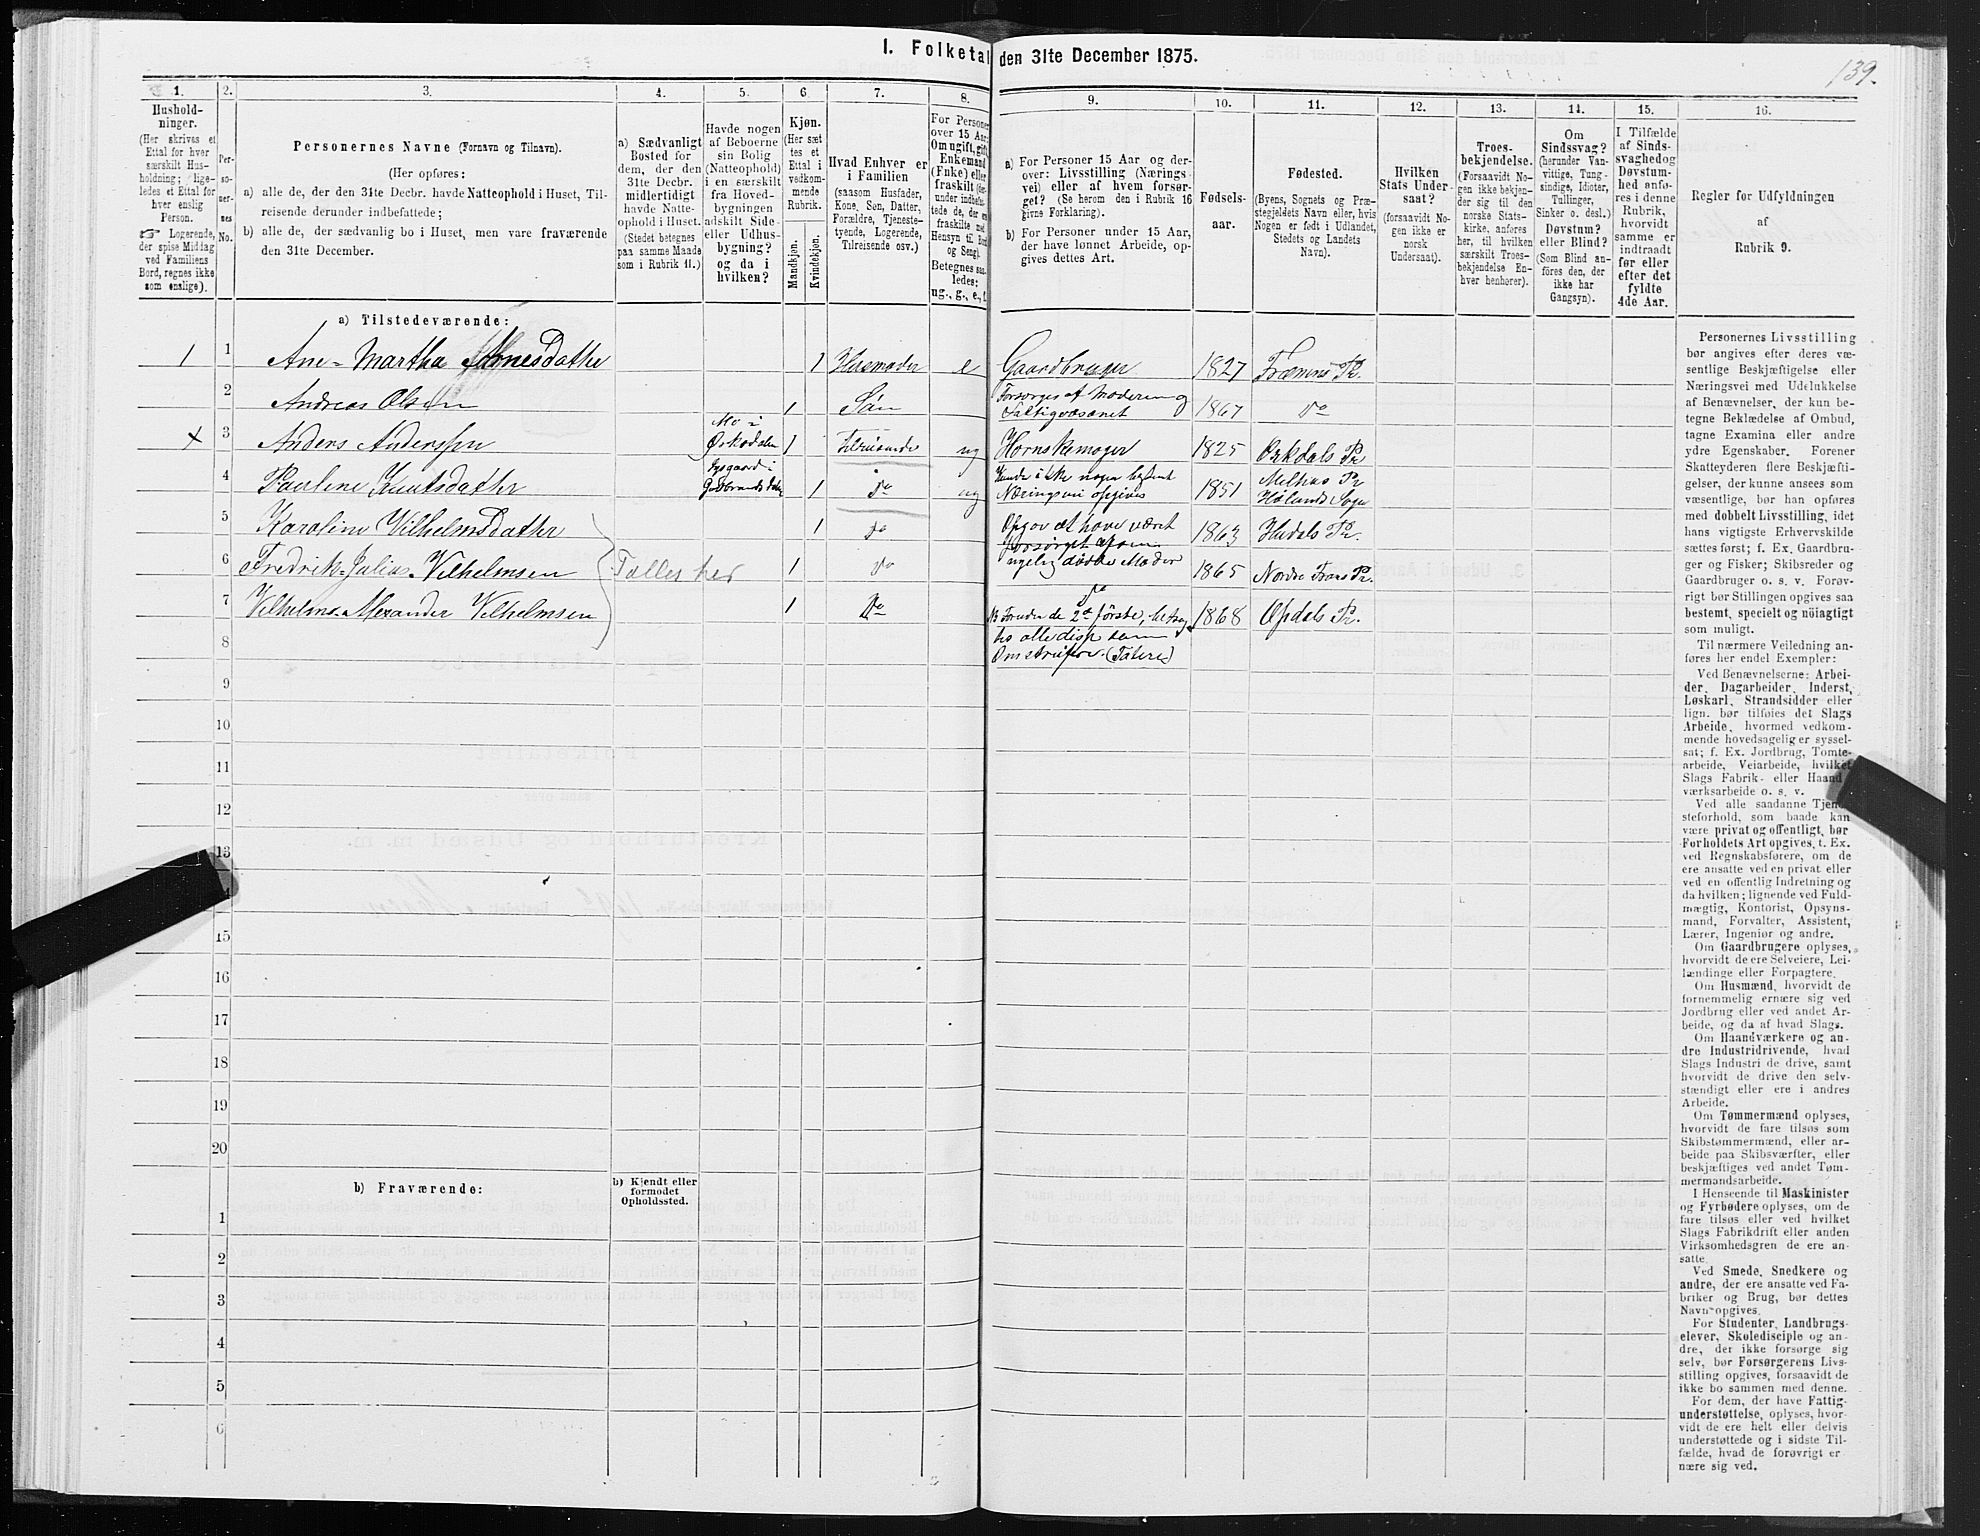 I. Folketal
den 31te December 1875.
139.
1.
Hushold-
ninger.
(Her skrives et
Ettal for hver
særskilt Hus-
holdning; lige-
ledes et Ettal for
hver enslig
Person.
☞ Logerende,
der spise Middag
ved Familiens
Bord, regnes ikke
som enslige).
2.
Per-
so-
ner-
nes
No.
3.
Personernes Navne (Fornavn og Tilnavn).
(Her opføres:
a) alle de, der den 31te Decbr. havde Natteophold i Huset, Til-
reisende derunder indbefattede;
b) alle de, der sædvanlig bo i Huset, men vare fraværende
den 31te December.
4.
a) Sædvanligt
Bosted for
dem, der den
31te Decbr.
midlertidigt
havde Natte-
ophold i Huset.
(Stedet betegnes
paa samme Maade
som i Rubrik 11.)
5.
Havde nogen
af Beboerne
sin Bolig
(Natteophold)
i en særskilt
fra Hoved-
bygningen
adskilt Side-
eller Udhus-
bygning?
og da i
hvilken?
6.
Kjøn.
(Her sæt
tes et
Ettal i
vedkom-
mende
Rubrik.
Mandkjøn.
Kvindekjøn.
7.
Hvad Enhver er
i Familien
(saasom Husfader,
Kone, Søn, Datter,
Forældre, Tjeneste-
tyende, Logerende,
Tilreisende osv.)
8.
For Personer
over 15 Aar:
Om ugift, gift,
Enkemand
(Enke) eller
fraskilt
Betegnes saa-
ledes:
ug., g., e., f.
9.
a) For Personer 15 Aar og der-
over: Livsstilling (Nærings-
vei) eller af hvem forsør-
get? (Se herom den i Rubrik 16
givne Forklaring).
b) For Personer under 15 Aar,
der have lønnet Arbeide, op-
gives dettes Art.
10.
Fødsels-
aar.
11.
Fødested.
(Byens, Sognets og Præ-
stegjeldets Navn eller, hvis
Nogen er født i Udlandet,
Stedets og Landets
Navn).
12.
Hvilken
Stats Under-
saat?
(forsaavidt No-
gen ikke er
norsk
Undersaat).
13.
Troes-
bekjendelse.
(Forsaavidt No-
gen ikke bekjen-
der sig til den
norske Stats-
kirke, anføres
her, til hvilken
særskilt Troes-
bekjendelse En-
hver henhører).
14.
Om
Sindssvag?
(herunder Van-
vittige, Tung-
sindige, Idioter,
Tullinger,
Sinker o. desl.)
Døvstum?
eller Blind?
(Som Blind an-
føres den, der
ikke har
Gangsyn).
15.
I Tilfælde
af Sinds-
svaghedog
Døvstum-
hed anfø-
res i denne
Rubrik,
hvorvidt
samme er
indtraadt
før eller
efter det
fyldte
4de Aar.
16.
Regler for Udfyldningen
af
Rubrik 9.
a) Tilstedeværende:
1 1 Ane-Martha Arnesdatter 1 Husmoder e Gaardbruger 1827 Frænens Pr.
2 Andreas Olsen 1 Søn Forsørges af Moderen og Fattigvæsenet 1867 do
x 3 Anders Anderssen Mo i Orkedalen 1 Tilreisende ug 1825 Orkdals Pr
4 Pauline Knutsdatter Gudbrandsdalen 1 do ug Kunde ikke nogen bestemt Næringsvei opgives 1851 Melhus Pr Hølands Sogn
5 Karoline Vilhelmsdatter 1 do Opgav at have været forsørget af 1863 Pr.
6 Fredrik-Julius Vilhelmsen Tatter her 1 do døde Moder 1865 Nordre Pr.
7 Vilhelm-Alexander Vilhelmsen 1 Do do 1868 Opdals Pr.
NB Foruden de 2de første, betrag-
tes alle disse som
Omstreifere. (Tatere)
8
9
10
11
12
13
14
15
16
17
18
19
20
b) Fraværende:
b) Kjendt eller
formodet
Opholdssted.
1
2
3
4
5
6
Personernes Livsstilling
bør angives efter deres væ-
sentlige Beskjæftigelse eller
Næringsvei med Udelukkelse
af Benævnelser, der kun be-
tegne Beklædelse af Ombud,
tagne Examina eller andre
ydre Egenskaber. Forener
Skatteyderen flere Beskjæfti-
gelser, der kunne ansees som
væsentlige, bør han opføres
med dobbelt Livsstilling, idet
hans vigtigste Erhvervskilde
sættes først; f. Ex. Gaardbru-
ger og Fisker; Skibsreder og
Gaardbruger o. s. v. Forøv-
rigt bør Stillingen opgives saa
bestemt, specielt og nøiagtigt
som muligt.
Til nærmere Veiledning an-
føres her endel Exempler:
Ved Benævnelserne: Arbei-
der, Dagarbeider, Inderst,
Løskarl, Strandsidder eller
lign. bør tilføies det Slags
Arbeide, hvormed vedkom-
mende hovedsagelig er syssel-
sat; f. Ex. Jordbrug, Tomte-
arbeide, Veiarbeide, hvilket
Slags Fabrik- eller Haand-
værksarbeide o. s. v.
Ved alle saadanne Tjene-
steforhold, som baade kan
være privat og offentligt, bør
Forholdets Art opgives, t. Ex.
ved Regnskabsførere, om de
ere ansatte ved en privat eller
ved en offentlig Indretning og
da hvilken; lignende ved Fuld-
mægtig, Kontorist, Opsyns-
mand, Forvalter, Assistent,
Lærer, Ingeniør og andre.
Om Gaardbrugere oplyses,
hvorvidt de ere Selveiere, Lei-
lændinge eller Forpagtere.
Om Husmænd, hvorvidt de
fornemmelig ernære sig ved
Jordbrug eller ved andet Ar-
beide, og da af hvad Slags.
Om Haandværkere og an-
dre Industridrivende, hvad
Slags Industri de drive, samt
hvorvidt de drive den selv-
stændigt eller ere i andres
Arbeide.
Om Tømmermænd oplyses,
hvorvidt de fare tilsøs som
Skibstømmermænd, eller ar-
beide paa Skibsværfter, eller
beskjæftiges ved andet Tøm-
mermandsarbeide.
I Henseende til Maskinister
og Fyrbødere oplyses, om de
fare tilsøs eller ved hvilket
Slags Fabrikdrift eller anden
Virksomhedsgren de ere an-
satte.
Ved Smede, Snedkere og
andre, der ere ansatte ved Fa-
briker og Brug, bør dettes
Navn opgives.
For Studenter, Landbrugs-
elever, Skoledisciple og an-
dre, der ikke forsørge sig
selv, bør Forsørgerens Livs-
stilling opgives, forsaavidt de
ikke bo sammen med denne.
For dem, der have Fattig-
understøttelse, oplyses, hvor-
vidt de ere helt eller delvis
understøttede og i sidste Til-
fælde, hvad de forøvrigt er-
nære sig ved.